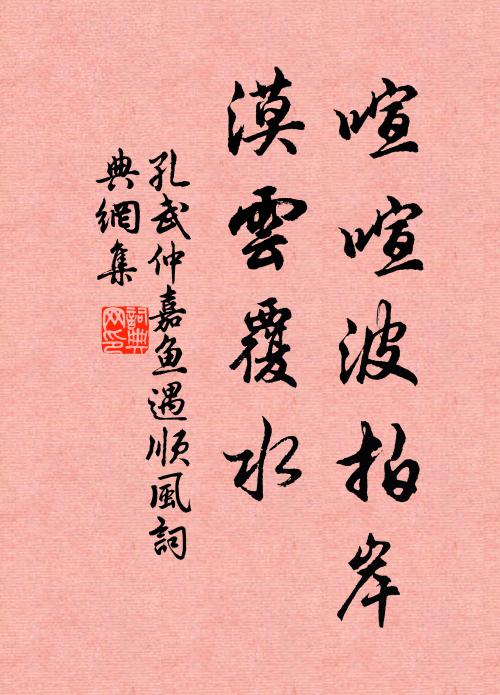 喧喧波拍岸
漠雲覆水
孔武仲嘉鱼遇顺風詞
典網集
詞典
网印